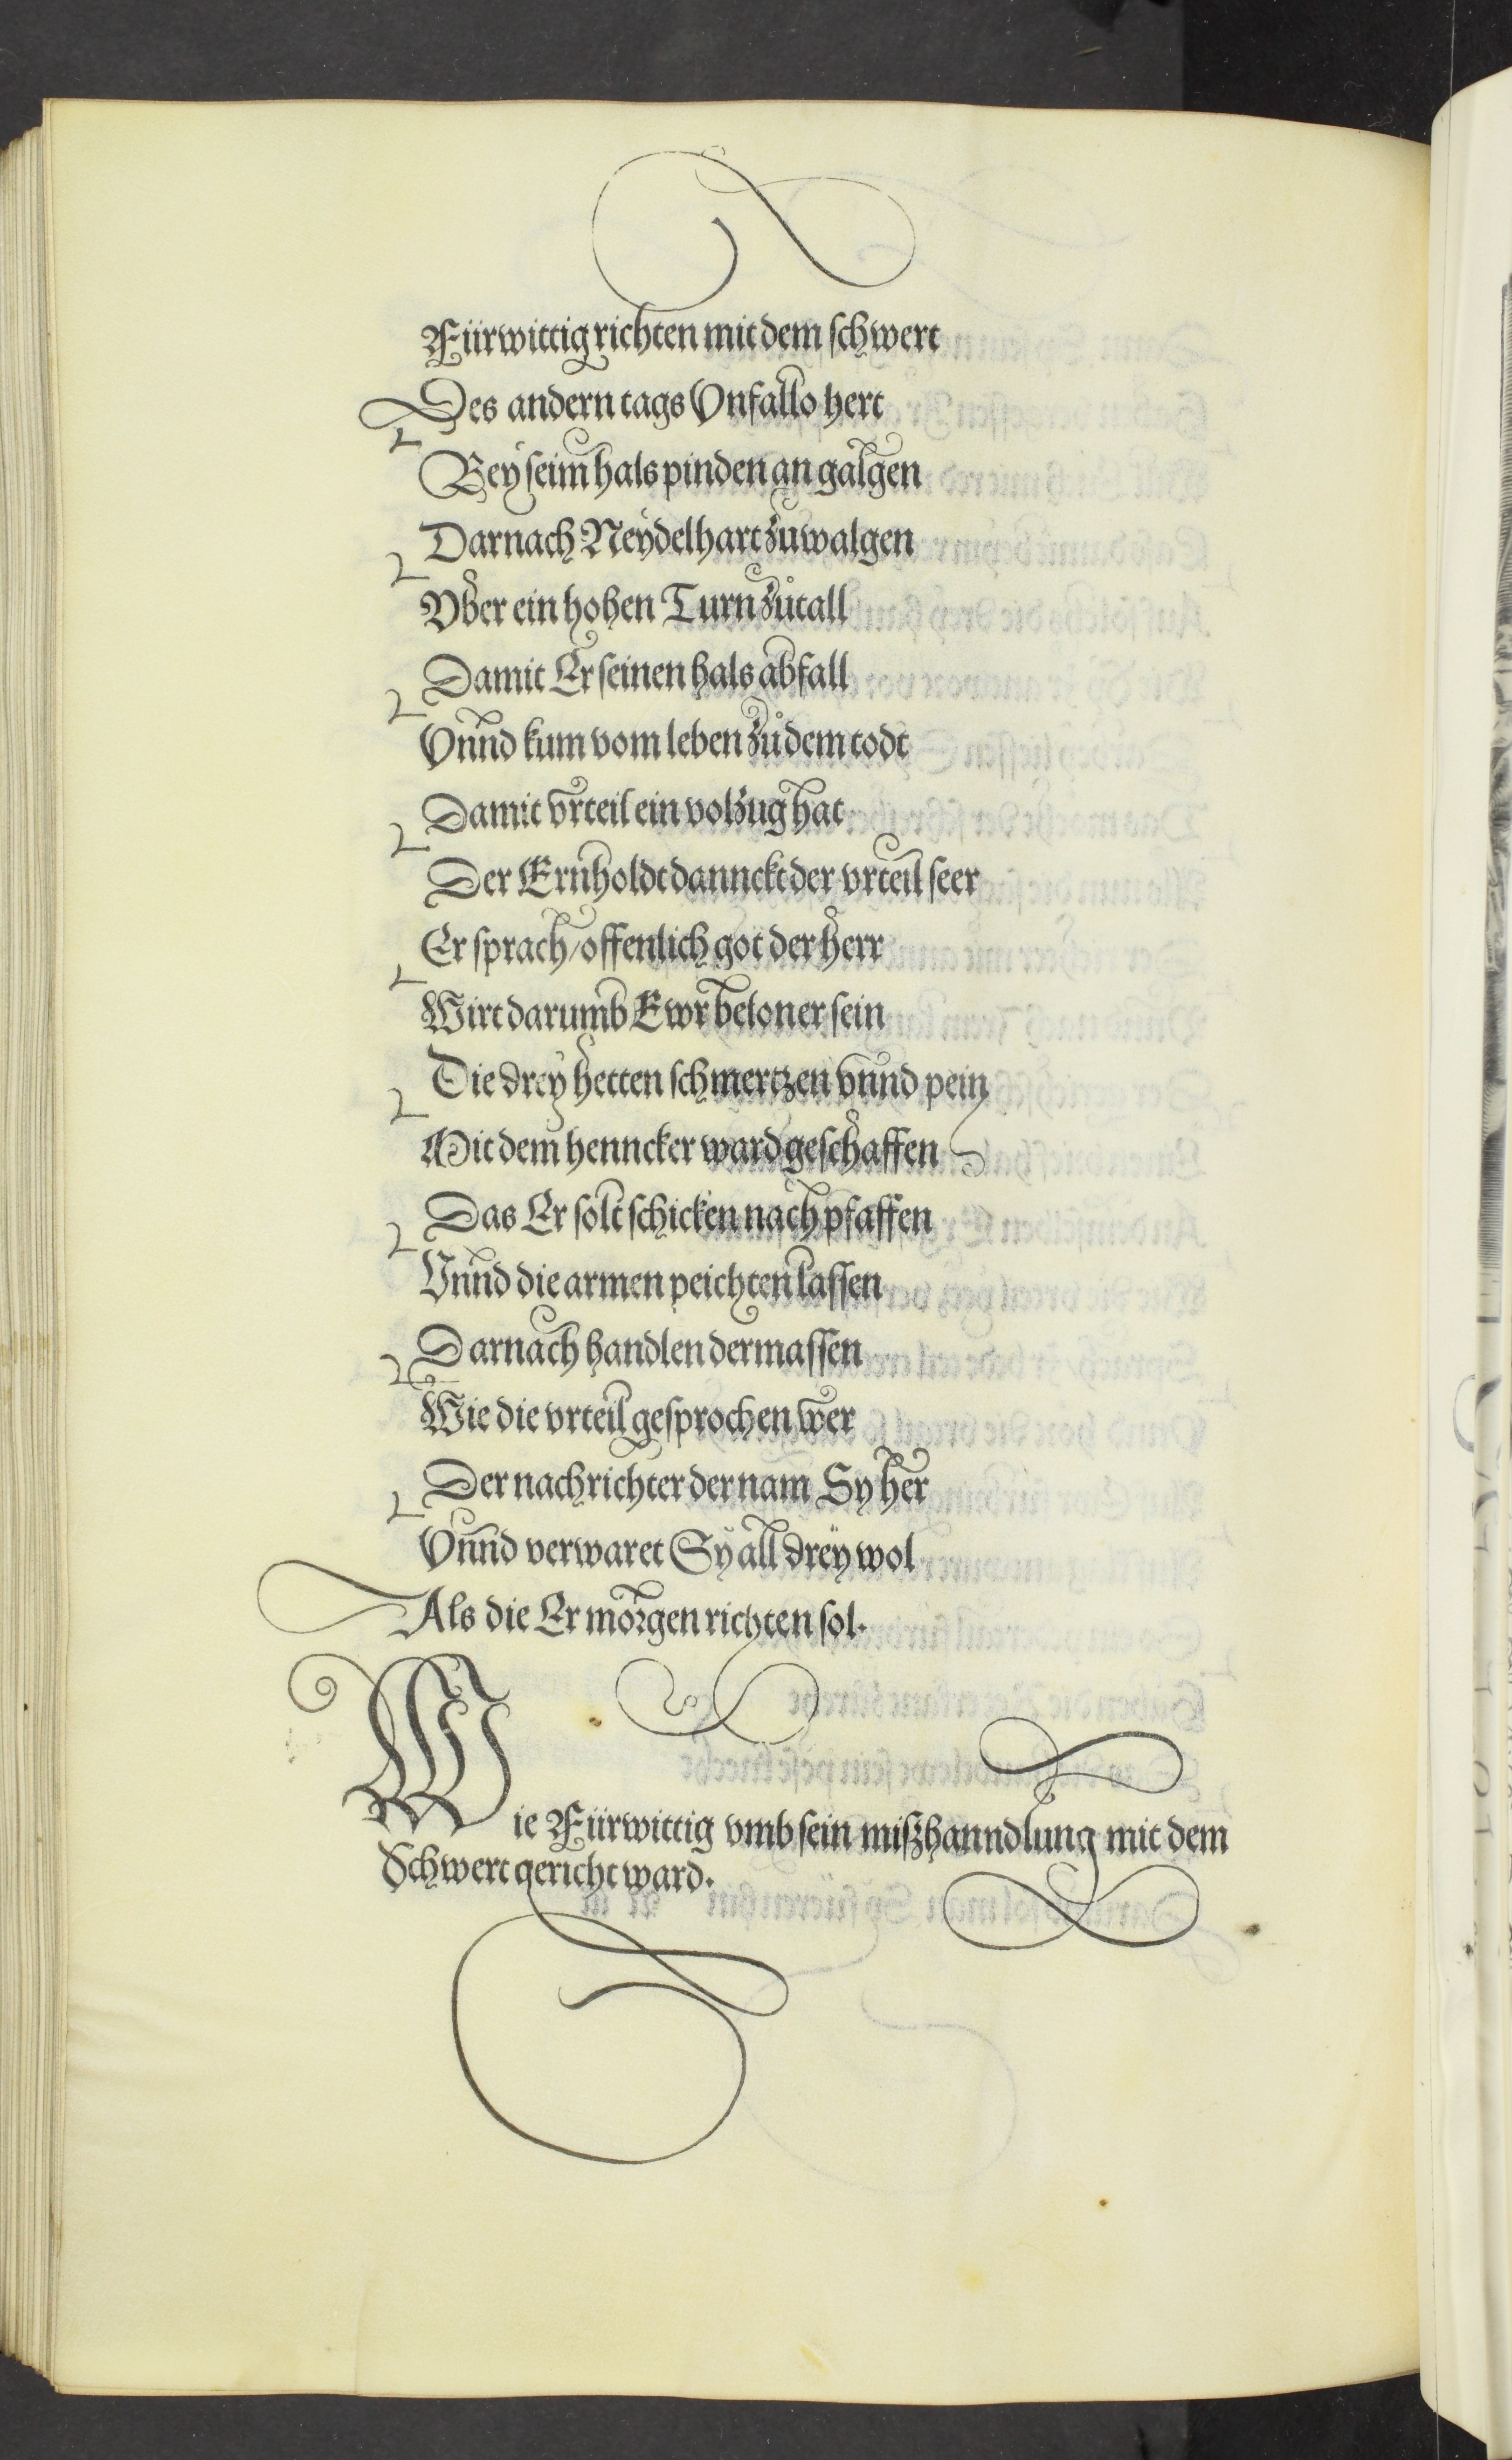 Fürwittig richten mit dem schwert
Des andern tags Vnfallo hert
Bey seim hals pinden an galgen
Darnach Neydelhart zuwalgen
Vber ein hohen Turn zůtall
Damit Er seinen hals abfall
Vnnd kum vom leben zů dem todt
Damit vrteil ein volzug hat
Der Ernholdt dannckt der vrteil seer
Er sprach/offenlich got der herr
Wirt darumb Ewr beloner sein
Die drey hetten schmertzen vnnd pein
Mit dem henncker ward geschaffen
Das Er solt schicken nach pfaffen
Vnnd die armen peichten lassen
Darnach handlen dermassen
Wie die vrteil gesprochen wer
Der nachrichter der nam Sy her
Vnnd verwaret Sy all drey wol
Als die Er morgen richten sol.
Wie Fürwittig vmb sein mißhanndlung mit dem
Schwert gericht ward.